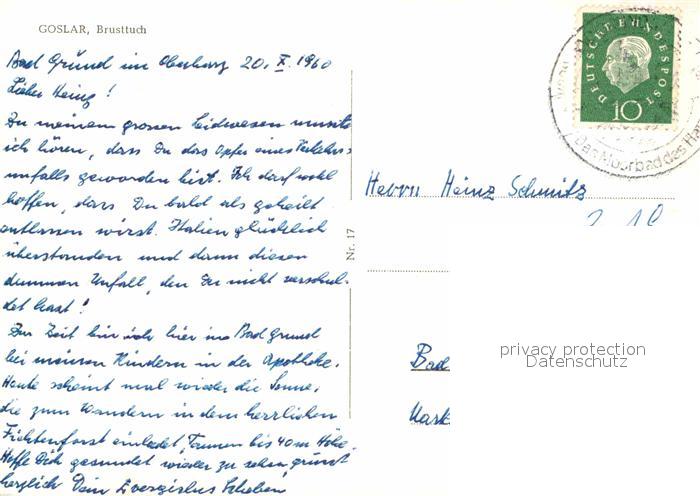 GOSLAR, Brusttuch
Bad Grund im Oberharz 20. X. 1960
Lieber Heinz!
Zu meinem grossen Leidwesen musste
ich hören, dass Du das Opfer eines Verkehrs-
unfalls geworden bist. Ich darf wohl
hoffen, dass Du bald als geheilt
entlassen wirst. Italien glücklich
überstanden und dann diesen
dummen Unfall, den Du nicht verschul-
det hast!
Zur Zeit bin ich hier in Bad Grund
bei meinen Kindern in der Apotheke.
Heute scheint mal wieder die Sonne,
die zum Wandern in dem herrlichen
Fichtenforst einladet, Tannen bis 40 m Höhe.
Hoffe Dich gesundet wieder zu sehen, grüsst
herzlich Dein
Nr. 17
DEUTSCHE BUNDESPOST
10
Das Moorbad des Ha
Herrn Heinz Schmitz
Bad
Mark
privacy protection
Datenschutz